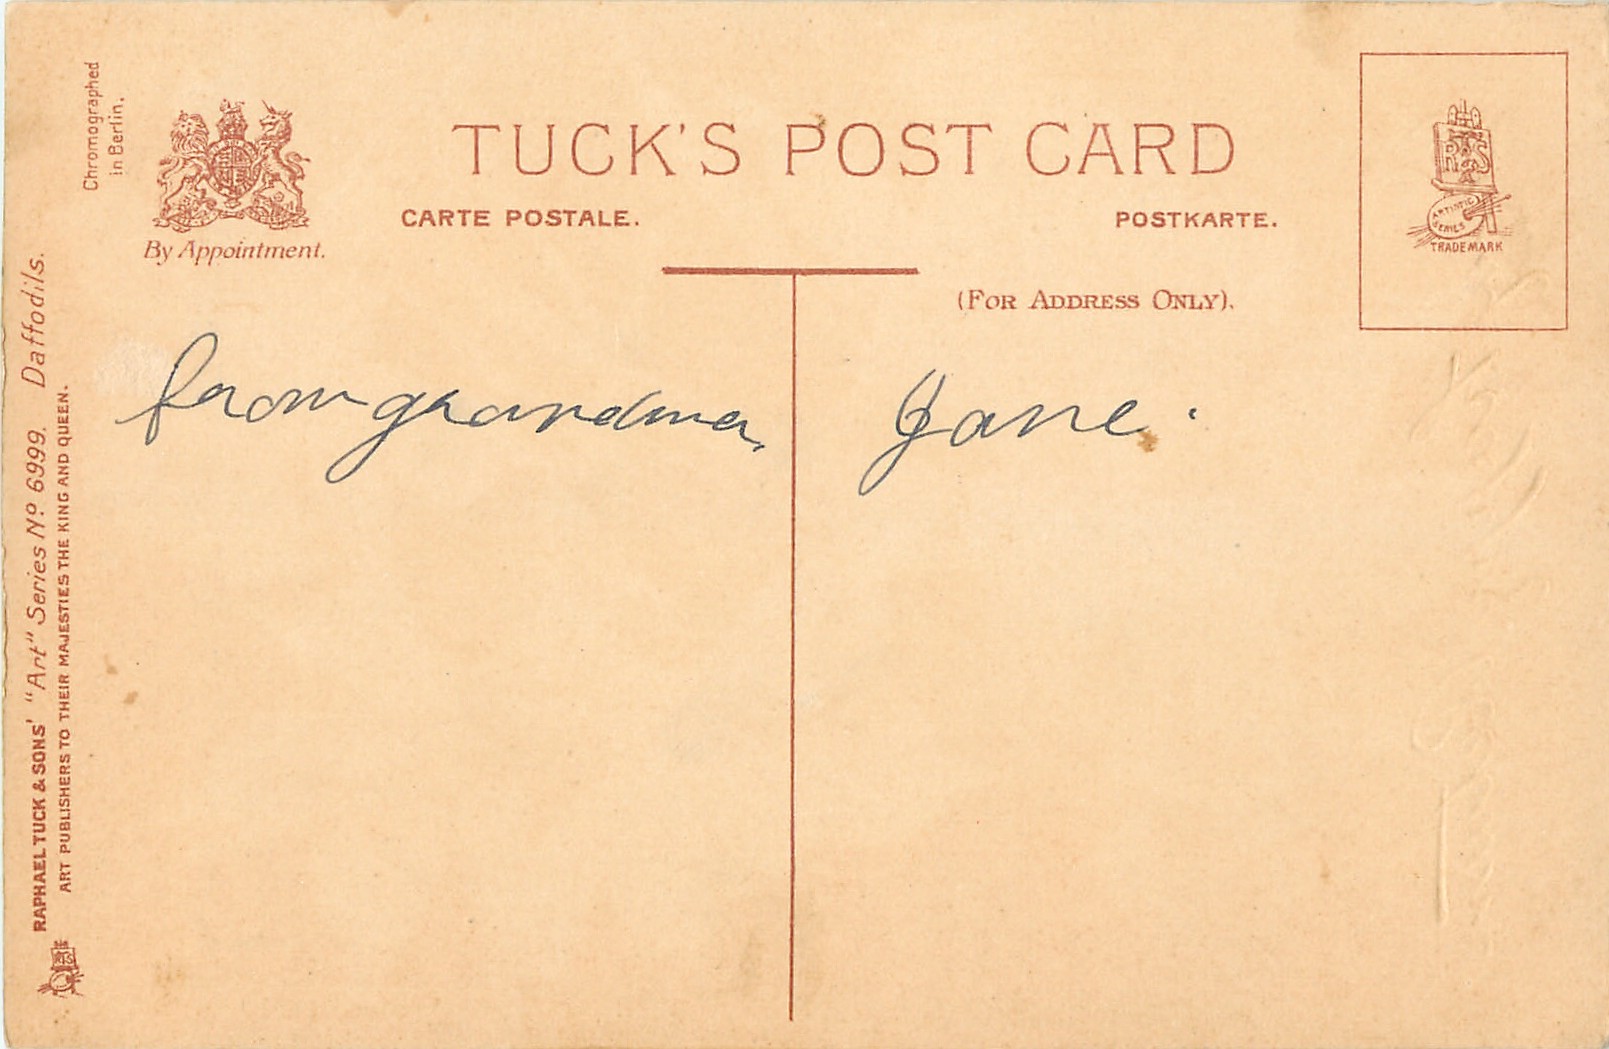 Chromographed
in Berlin.
By Appointment.
TUCK'S POST CARD
CARTE POSTALE.
POSTKARTE.
(FOR ADDRESS ONLY).
RTS
ARTISTIC
SERIES
TRADE MARK
from grandma,
Jane.
RAPHAEL TUCK & SONS' "Art" Series Nº 6999. Daffodils.
ART PUBLISHERS TO THEIR MAJESTIES THE KING AND QUEEN.
RTS